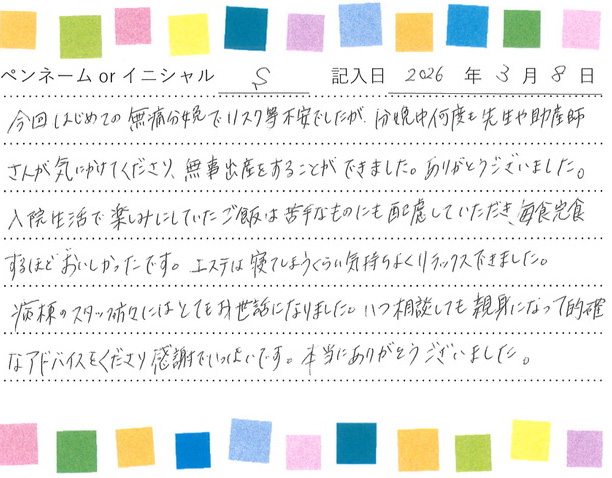 ペンネーム or イニシャル S 記入日 2026 年 3 月 8 日
今回はじめての無痛分娩でリスク等不安でしたが、分娩中何度も先生や助産師
さんが気にかけてくださり、無事出産をすることができました。ありがとうございました。
入院生活で楽しみにしていたご飯は苦手なものにも配慮していただき、毎食完食
するほどおいしかったです。エステは寝てしまうくらい気持ちよくリラックスできました。
病棟のスタッフ方々にはとてもお世話になりました。いつ相談しても親身になって的確
なアドバイスをくださり感謝でいっぱいです。本当にありがとうございました。